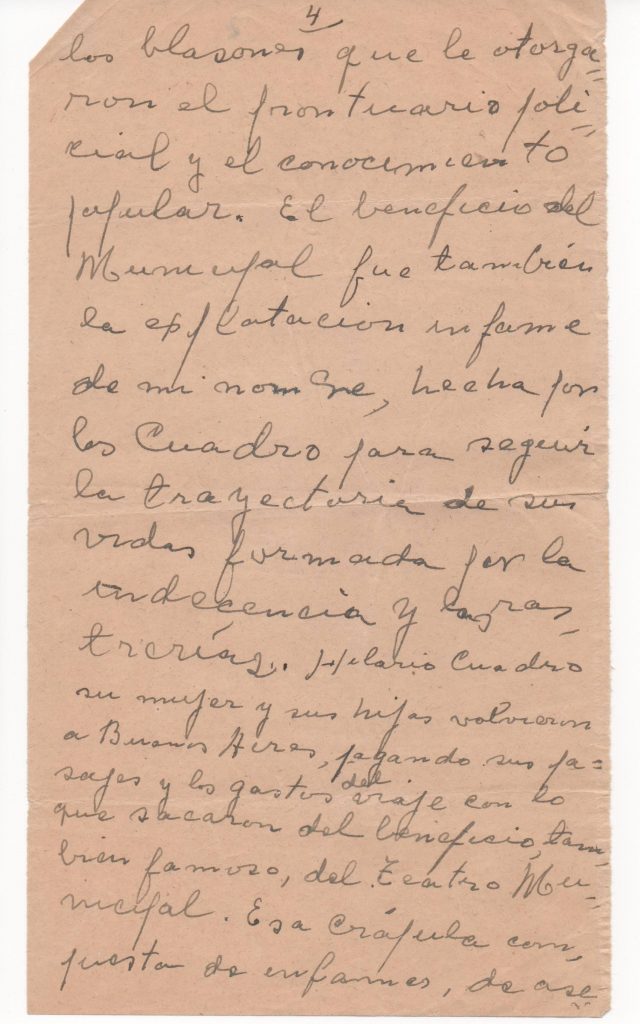 4
los blasones que le otorga=
ron el prontuario poli-
cial y el conocimiento
popular. El beneficio del
Municipal fue también
la explotacion infame
de mi nombre, hecha por
los Cuadro para seguir
la trayectoria de sus
vidas formada por la
indecencia y las ras-
trerías. Hilario Cuadro
su mujer y sus hijas volvieron
a Buenos Aires, pagando sus pa=
sajes y los gastos del viaje con lo
que sacaron del beneficio, tam-
bien famoso, del Teatro Mu-
nicipal. Esa Crápula com-
puesta de infames, de ase